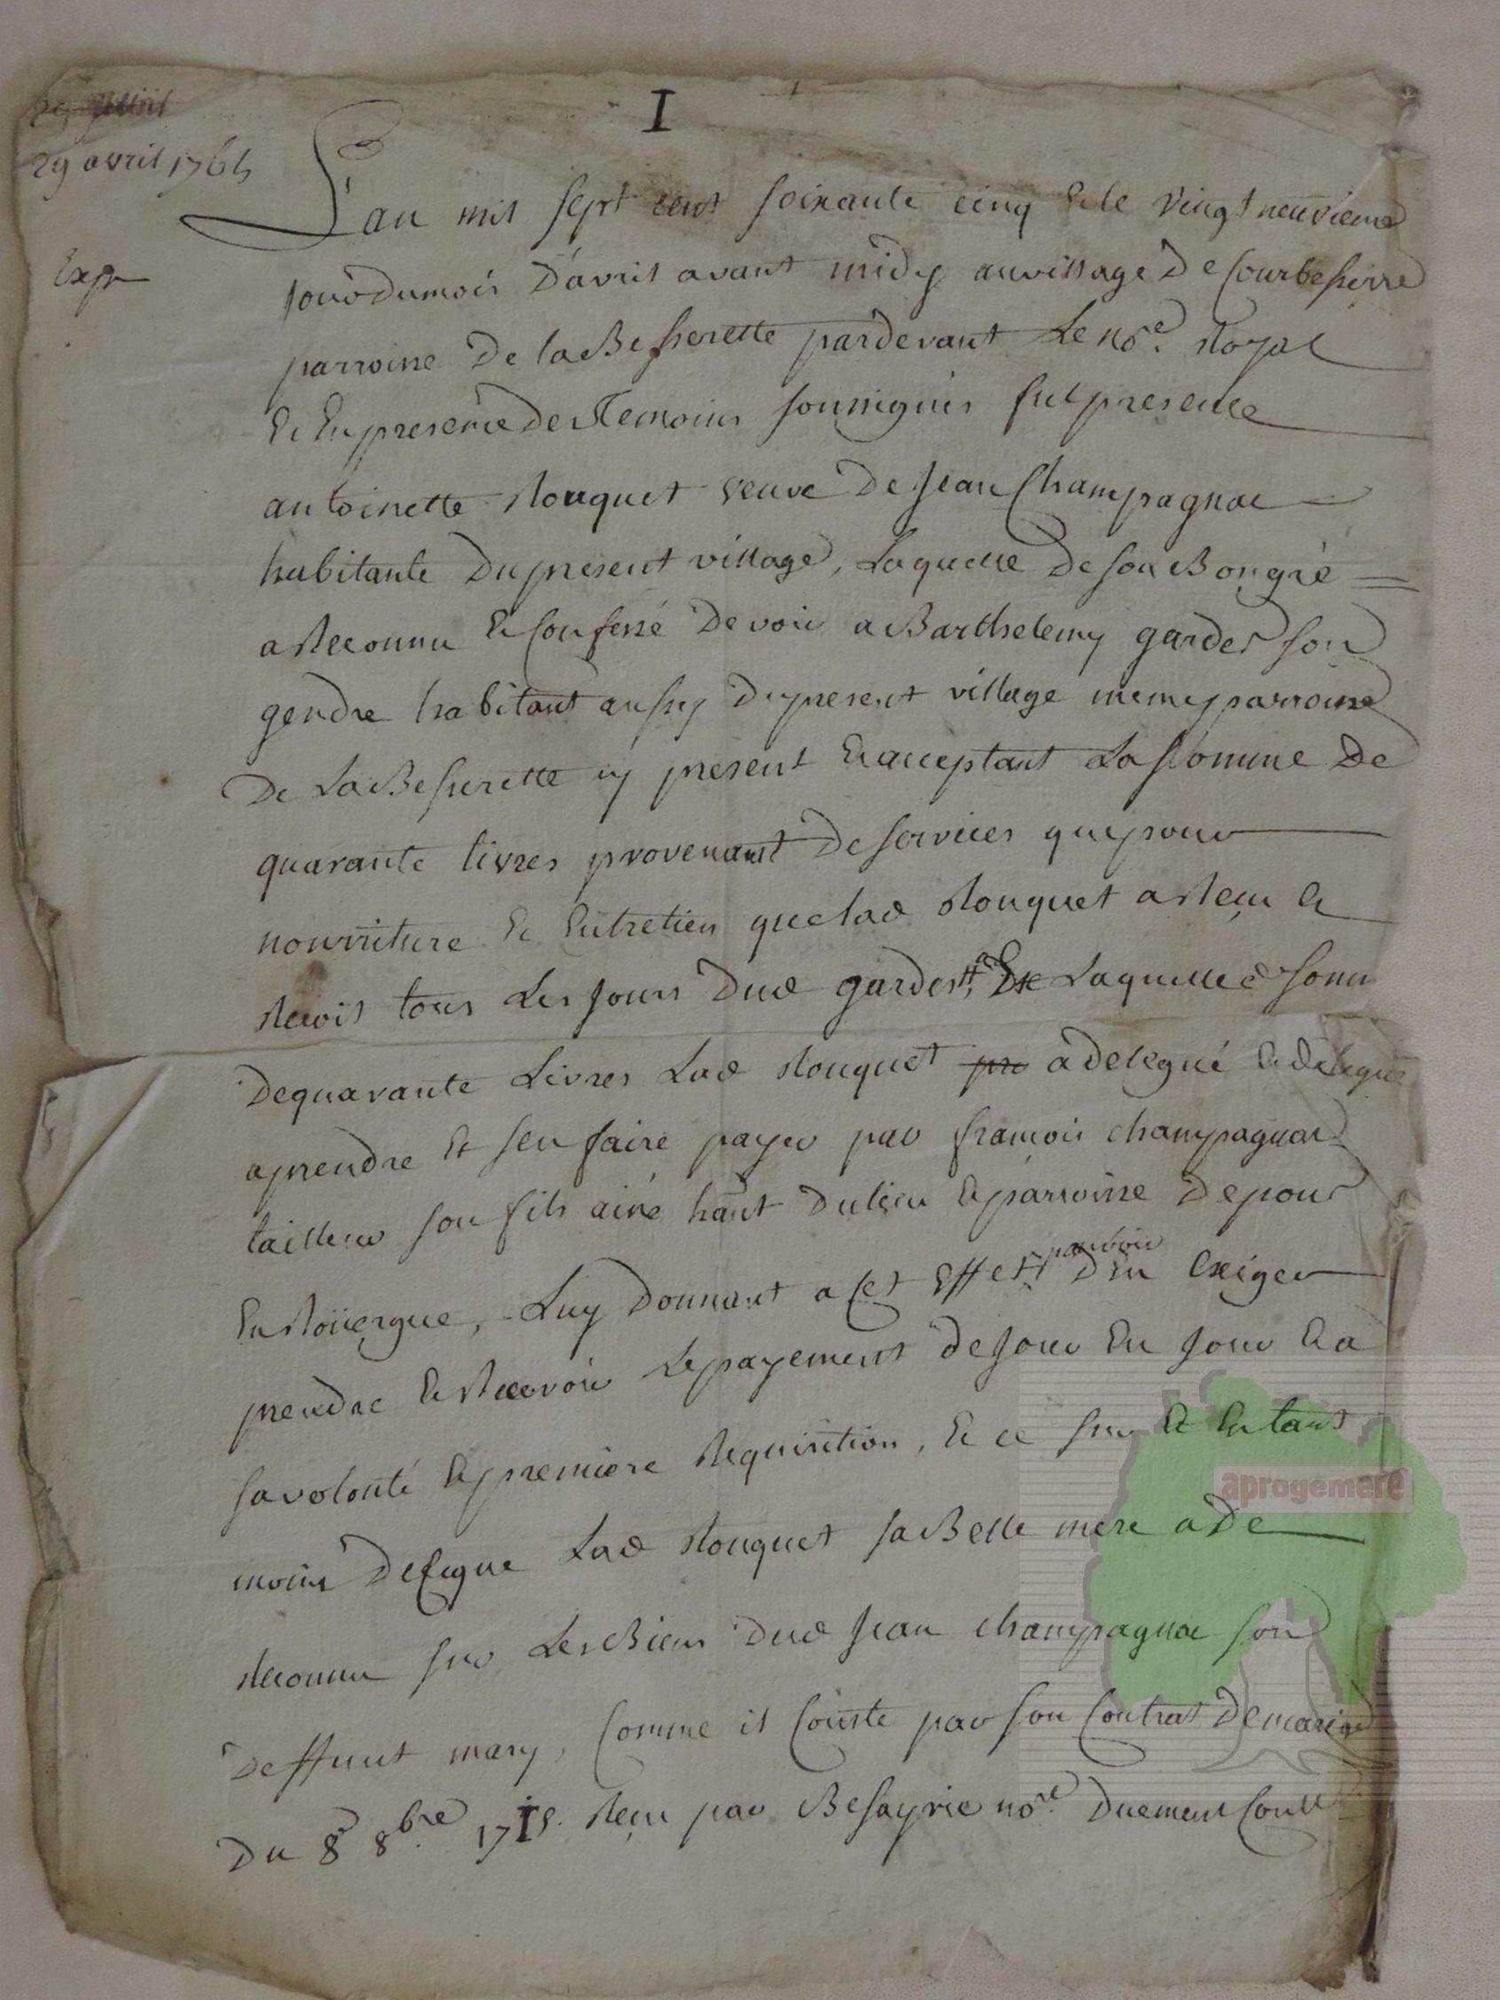 I
29 avril 1765
L'an mil sept cent soixante cinq & le vingt neuvieme
Exp
jour du mois d'avril avant midy au village de Courbessierre
parroisse de la Besserette pardevant le no.re Royal
Et En presence des Temoins soussignés fut presente
antoinette Rouquet veuve de Jean Champagnac
habitante du present village, Laquelle de son Bon gré
a Reconnu & Confessé devoir a Barthelemy gardes son
gendre habitant aussy du present village meme parroisse
de La Besserette ÿ present & acceptant La somme de
quarante livres provenant de services que pour
nourriture & Entretien que lad Rouquet a Reçu &
Recoit tous Les Jours dud gardes, Laquelle d somme
de quarante Livres Lad Rouquet pr a delegué & delegue
a prendre Et s'en faire payer par françois champagnac
tailleur son fils ainé hãnt du lieu & parroisse de pous
En Roüergue, Luy donnant a Cet Effet pouvoir d'En Exiger
prendre & Recevoir Le payement de Jour En Jour & a
sa volonté & premiere Requisition, & ce sur & En tant
moins de ce que Lad Rouquet sa Belle mere a de
Reconnu sur Les Biens dud Jean champagnac son
deffunt mary, Comme il Conste par son Contrat de mariage
du 8e 8bre 1715. Reçu par Besayrie no.re duement Conllé
aprogemere